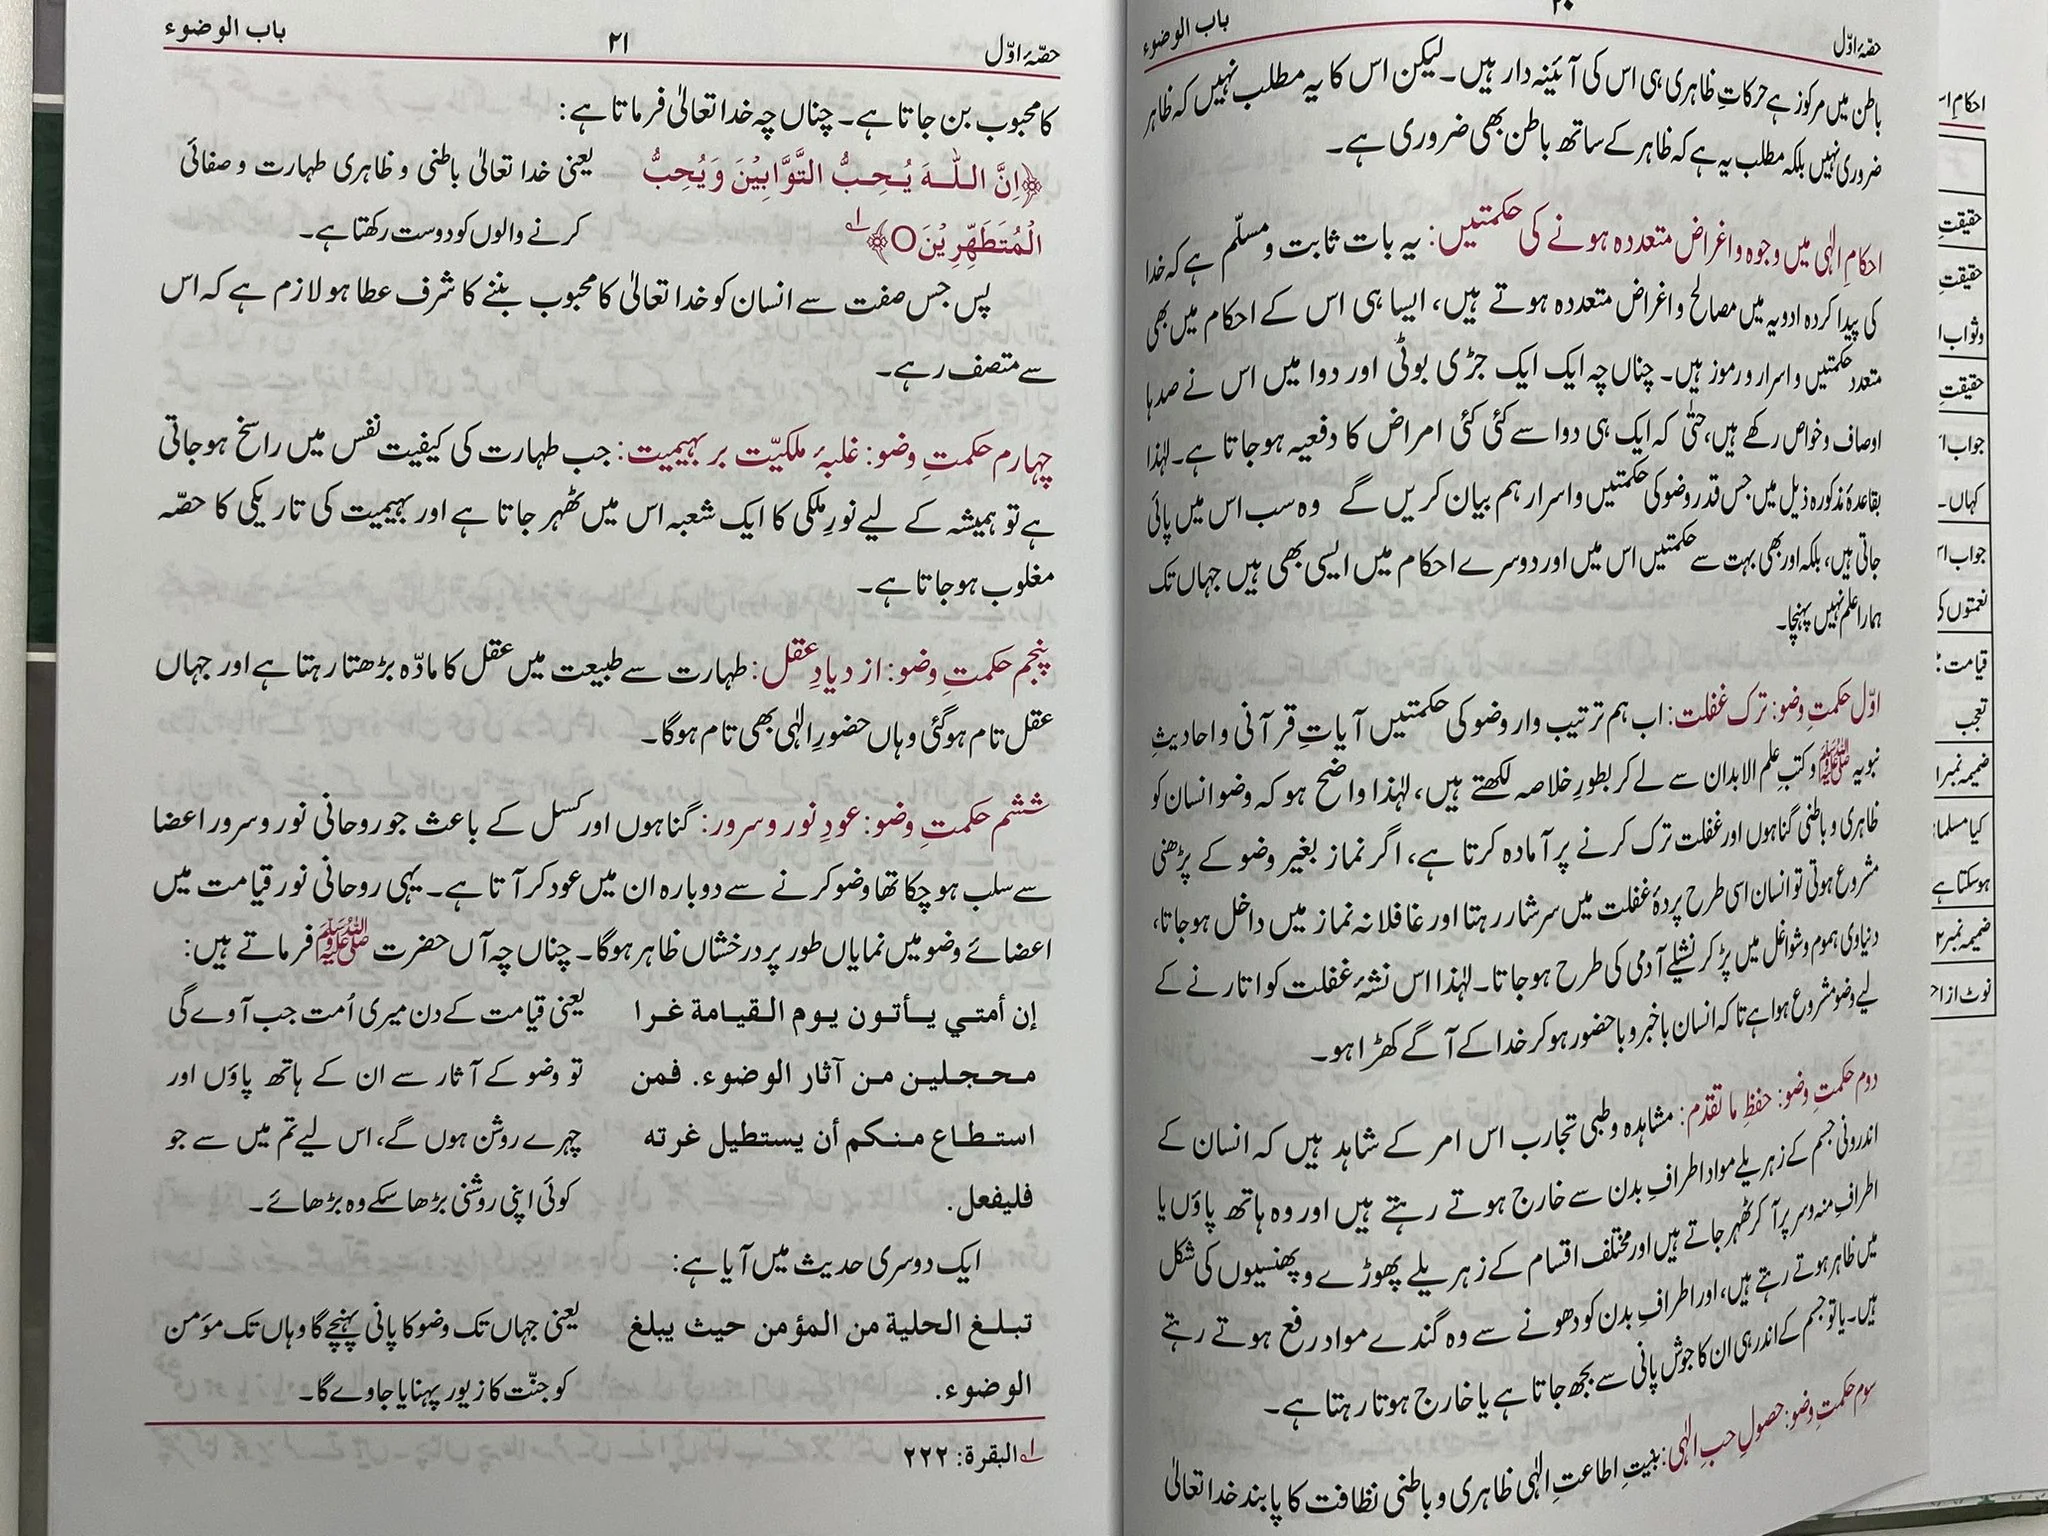 حصّۂ اوّل
۲۰
باب الوضوء
باطن میں مرکوز ہے حرکاتِ ظاہری ہی اس کی آئینہ دار ہیں۔ لیکن اس کا یہ مطلب نہیں کہ ظاہر
ضروری نہیں بلکہ مطلب یہ ہے کہ ظاہر کے ساتھ باطن بھی ضروری ہے۔
احکامِ الٰہی میں وجوہ و اغراض متعددہ ہونے کی حکمتیں: یہ بات ثابت و مسلّم ہے کہ خدا
کی پیدا کردہ ادویہ میں مصالح و اغراض متعددہ ہوتے ہیں، ایسا ہی اس کے احکام میں بھی
متعدد حکمتیں و اسرار و رموز ہیں۔ چناں چہ ایک ایک جڑی بوٹی اور دوا میں اس نے صدہا
اوصاف و خواص رکھے ہیں، حتیٰ کہ ایک ہی دوا سے کئی کئی امراض کا دفعیہ ہوجاتا ہے۔ لہٰذا
بقاعدۂ مذکورہ ذیل میں جس قدر وضو کی حکمتیں و اسرار ہم بیان کریں گے وہ سب اس میں پائی
جاتی ہیں، بلکہ اور بھی بہت سے حکمتیں اس میں اور دوسرے احکام میں ایسی بھی ہیں جہاں تک
ہمارا علم نہیں پہنچا۔
اوّل حکمتِ وضو: ترک غفلت: اب ہم ترتیب وار وضو کی حکمتیں آیاتِ قرآنی و احادیثِ
نبویہ ﷺ و کتبِ علم الابدان سے لے کر بطورِ خلاصہ لکھتے ہیں، لہٰذا واضح ہو کہ وضو انسان کو
ظاہری و باطنی گناہوں اور غفلت ترک کرنے پر آمادہ کرتا ہے، اگر نماز بغیر وضو کے پڑھنی
مشروع ہوتی تو انسان اسی طرح پردۂ غفلت میں سرشار رہتا اور غافلانہ نماز میں داخل ہوجاتا،
دنیاوی ہموم و شواغل میں پڑ کر نشیلے آدمی کی طرح ہوجاتا۔ لہٰذا اس نشۂ غفلت کو اتارنے کے
لیے وضو مشروع ہوا ہے تاکہ انسان باخبر و باحضور ہوکر خدا کے آگے کھڑا ہو۔
دوم حکمتِ وضو: حفظِ ما تقدم: مشاہدہ و طبی تجارب اس امر کے شاہد ہیں کہ انسان کے
اندرونی جسم کے زہریلے مواد اطرافِ بدن سے خارج ہوتے رہتے ہیں اور وہ ہاتھ پاؤں یا
اطرافِ منہ و سر پر آکر ٹھہر جاتے ہیں اور مختلف اقسام کے زہریلے پھوڑے و پھنسیوں کی شکل
میں ظاہر ہوتے رہتے ہیں، اور اطرافِ بدن کو دھونے سے وہ گندے مواد رفع ہوتے رہتے
ہیں۔ یا تو جسم کے اندر ہی ان کا جوش پانی سے بجھ جاتا ہے یا خارج ہوتا رہتا ہے۔
سوم حکمتِ وضو: حصولِ حبِ الٰہی: بنیتِ اطاعتِ الٰہی ظاہری و باطنی نظافت کا پابند خدا تعالیٰ
حصّۂ اوّل
۲۱
باب الوضوء
کا محبوب بن جاتا ہے۔ چناں چہ خدا تعالیٰ فرماتا ہے:
﴿اِنَّ اللّٰہَ یُحِبُّ التَّوَّابِیْنَ وَیُحِبُّ
الْمُتَطَهِّرِیْنَ○﴾ ۱؎
یعنی خدا تعالیٰ باطنی و ظاہری طہارت و صفائی
کرنے والوں کو دوست رکھتا ہے۔
پس جس صفت سے انسان کو خدا تعالیٰ کا محبوب بننے کا شرف عطا ہو لازم ہے کہ اس
سے متصف رہے۔
چہارم حکمتِ وضو: غلبۂ ملکیّت بر بہیمیت: جب طہارت کی کیفیت نفس میں راسخ ہوجاتی
ہے تو ہمیشہ کے لیے نورِ ملکی کا ایک شعبہ اس میں ٹھہر جاتا ہے اور بہیمیت کی تاریکی کا حصّہ
مغلوب ہوجاتا ہے۔
پنجم حکمتِ وضو: ازدیادِ عقل: طہارت سے طبیعت میں عقل کا مادّہ بڑھتا رہتا ہے اور جہاں
عقل تام ہوگئی وہاں حضورِ الٰہی بھی تام ہوگا۔
ششم حکمتِ وضو: عودِ نور و سرور: گناہوں اور کسل کے باعث جو روحانی نور و سرور اعضا
سے سلب ہوچکا تھا وضو کرنے سے دوبارہ ان میں عود کر آتا ہے۔ یہی روحانی نور قیامت میں
اعضائے وضو میں نمایاں طور پر درخشاں ظاہر ہوگا۔ چناں چہ آں حضرت ﷺ فرماتے ہیں:
إن أمتي يأتون يوم القيامة غرا
محجلين من آثار الوضوء. فمن
استطاع منكم أن يستطيل غرته
فليفعل.
یعنی قیامت کے دن میری اُمت جب آوے گی
تو وضو کے آثار سے ان کے ہاتھ پاؤں اور
چہرے روشن ہوں گے، اس لیے تم میں سے جو
کوئی اپنی روشنی بڑھا سکے وہ بڑھائے۔
ایک دوسری حدیث میں آیا ہے:
تبلغ الحلية من المؤمن حيث يبلغ
الوضوء.
یعنی جہاں تک وضو کا پانی پہنچے گا وہاں تک مؤمن
کو جنّت کا زیور پہنایا جاوے گا۔
۱؎ البقرة: ۲۲۲
حقیقتِ
حقیقتِ
حقیقتِ
کہاں۔
نعمتوں کی
تعجب
ضمیمہ نمبر ۱
ہوسکتا ہے
ضمیمہ نمبر ۲